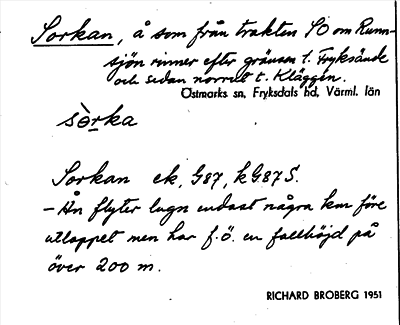 Sorkan, å som från trakten SO om Runn-
sjön rinner efter gränsen t. Fryksände
och sedan norrut t. Kläggen.
Östmarks sn, Fryksdals hd, Värml. län
sò̱rka
Sorkan ek, G87, kG87S.
– Ån flyter lugn endast några km före
utloppet men har f.ö. en fallhöjd på
över 200 m.
RICHARD BROBERG 1951